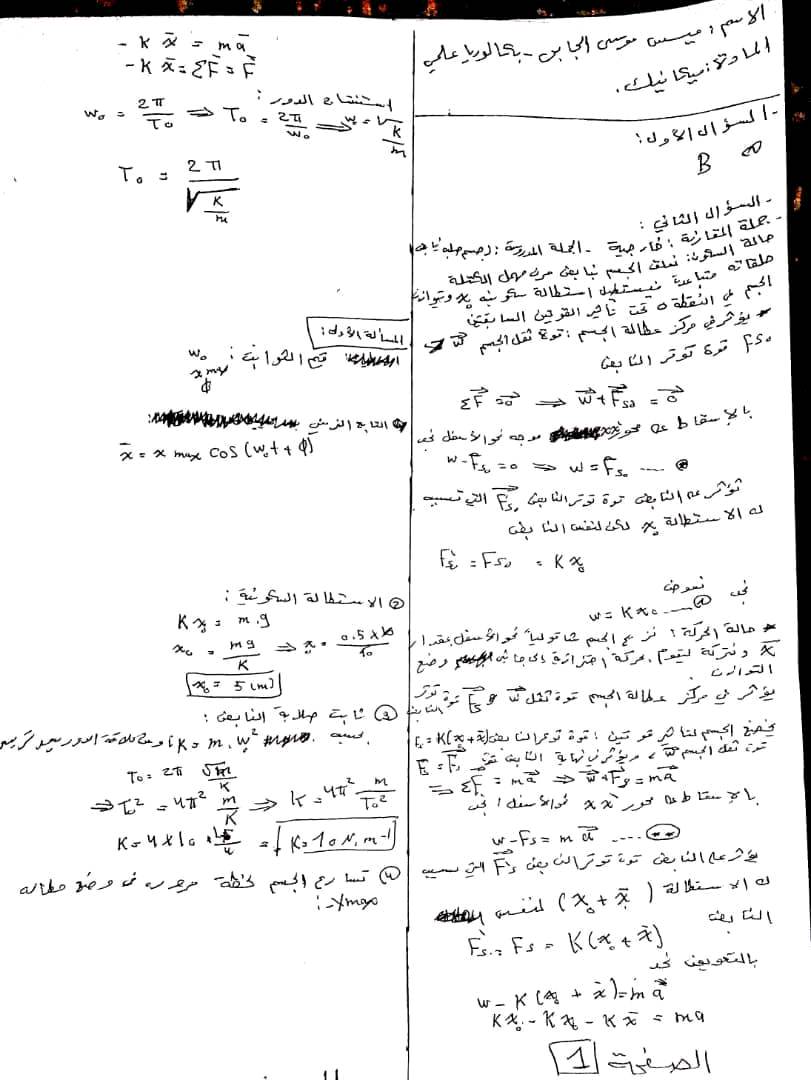 الاسم: ميس موسى الجابي - بكالوريا علمي
المادة: ميكانيك.
- السؤال الأول:
B
- السؤال الثاني:
- جملة المقارنة: خارجية - الجملة المدروسة: (جسم صلب نابض)
حالة السكون: نعلق الجسم بنابض مرن مهمل الكتلة
حلقاته متباعدة فيستطيل استطالة سكونية x₀ ويتوازن
الجسم في النقطة o تحت تأثير القوتين السابقتين
* يؤثر في مركز عطالة الجسم: قوة ثقل الجسم W
Fs₀ قوة توتر النابض
ΣF = 0 ⇒ W + Fs₀ = 0
بالإسقاط على محور xx' موجه نحو الأسفل نجد
w - Fs₀ = 0 ⇒ w = Fs₀ .... *
تؤثر على النابض قوة توتر النابض F's₀ التي تسبب
له الاستطالة x₀ لكن لنفس النابض
F's₀ = Fs₀ = K x₀
نعوض نجد
w = K x₀ .... *
* حالة الحركة: نزيح الجسم شاقولياً نحو الأسفل بمقدار
x̄ ونتركه ليقوم بحركة اهتزازية إلى جانبي وضع
التوازن
يؤثر في مركز عطالة الجسم قوة ثقل W و Fs قوة توتر النابض
يخضع الجسم لتأثير قوتين: قوة توتر النابض Fs = K(x₀ + x̄)
قوة ثقل الجسم W، ويؤثر في نهاية النابض قوة F's = Fs
⇒ ΣF = ma ⇒ W + Fs = ma
بالإسقاط على محور xx' نحو الأسفل نجد
w - Fs = m a .... **
يؤثر على النابض قوة توتر النابض F's التي تسبب
له الاستطالة (x₀ + x̄) لنفس
النابض
F's = Fs = K(x₀ + x̄)
بالتعويض نجد
w - K(x₀ + x̄) = m a
Kx₀ - Kx₀ - Kx̄ = ma
الصفحة 1
- K x̄ = ma
- K x̄ = ΣF = F
استنتاج الدور:
w₀ = 2π/T₀ ⇒ T₀ = 2π/w₀ ⇒ w = √(K/m)
T₀ = 2π/√(K/m)
المسألة الأولى:
قيم الثوابت: w₀
x max
φ
① التابع الزمني
x̄ = x max cos (w₀t + φ)
② الاستطالة السكونية:
K x₀ = m.g
x₀ = mg/K ⇒ x₀ = 0.5 × 10/10
x₀ = 5 (m)
③ ثابت صلابة النابض:
K = m.w₀²
T₀ = 2π √m/K
⇒ T₀² = 4π² m/K ⇒ K = 4π² m/T₀²
K = 4 × 10 × = K = 10 N.m⁻¹
④ تسارع الجسم لحظة مروره في وضع مطاله
- Xmax: